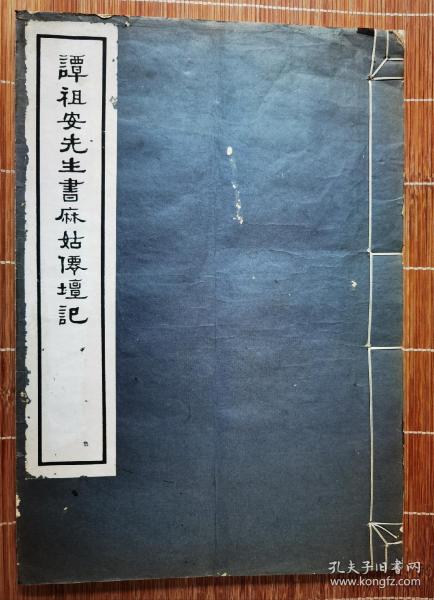 譚祖安先生書麻姑僊壇記
孔夫子旧书网
www.kongfz.com